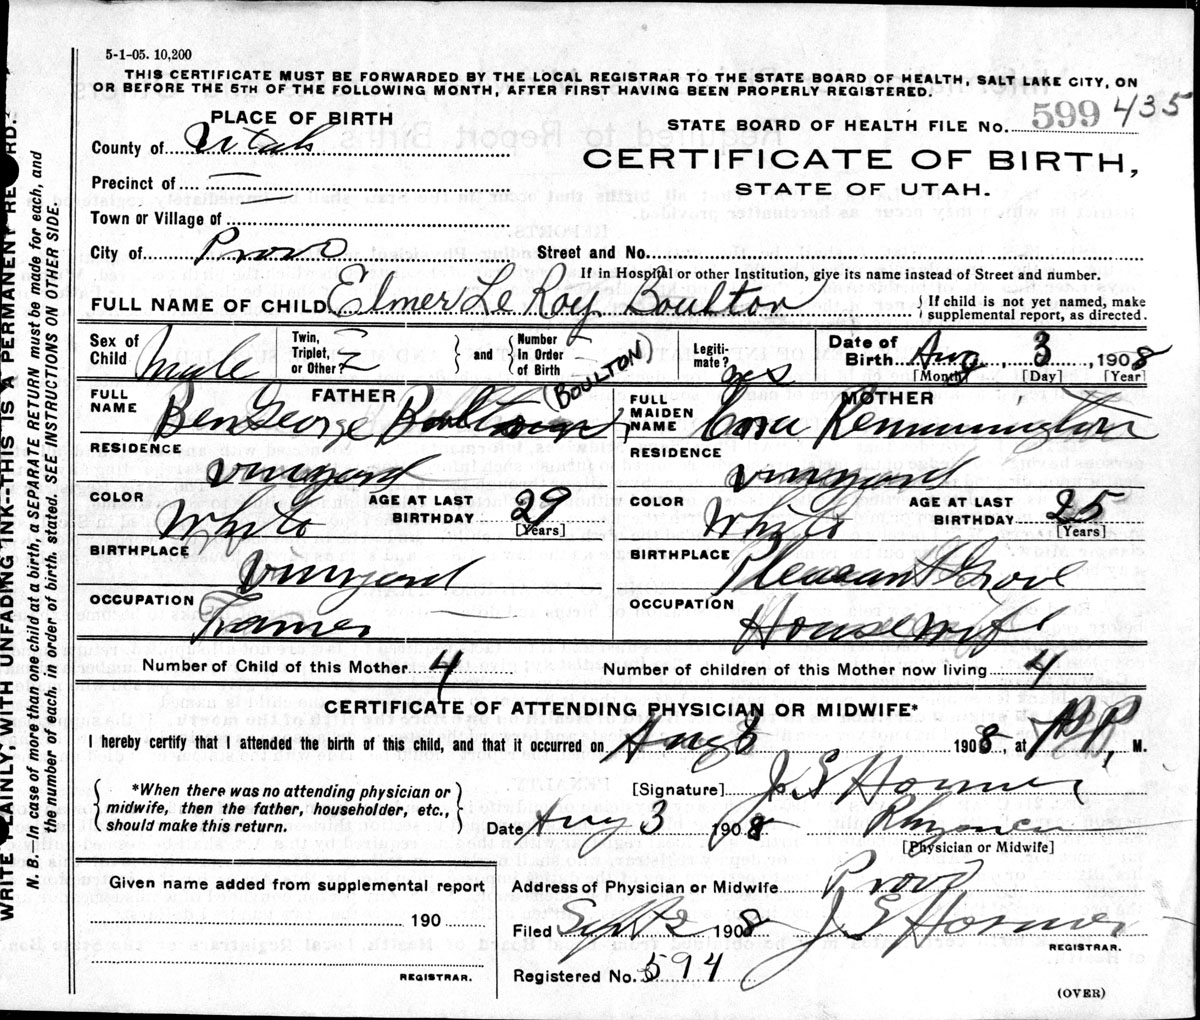 5-1-05. 10,200
THIS CERTIFICATE MUST BE FORWARDED BY THE LOCAL REGISTRAR TO THE STATE BOARD OF HEALTH, SALT LAKE CITY, ON
OR BEFORE THE 5TH OF THE FOLLOWING MONTH, AFTER FIRST HAVING BEEN PROPERLY REGISTERED.
PLACE OF BIRTH
STATE BOARD OF HEALTH FILE No. 599 435
County of Utah
CERTIFICATE OF BIRTH,
Precinct of
STATE OF UTAH.
Town or Village of
City of Provo Street and No.
If in Hospital or other Institution, give its name instead of Street and number.
FULL NAME OF CHILD Elmer Le Roy Boulton { If child is not yet named, make supplemental report, as directed.
Sex of Child Male Twin, Triplet, or Other? } and { Number In Order of Birth Legiti-mate? yes Date of Birth Aug 3 1908
[Month] [Day] [Year]
FATHER
MOTHER
FULL NAME Ben George Boulton (BOULTON)
FULL MAIDEN NAME Cora Remmington
RESIDENCE Vinyard
RESIDENCE Vinyard
COLOR White AGE AT LAST BIRTHDAY 29 [Years]
COLOR White AGE AT LAST BIRTHDAY 25 [Years]
BIRTHPLACE Vinyard
BIRTHPLACE Pleasant Grove
OCCUPATION Framer
OCCUPATION Housewife
Number of Child of this Mother 4 Number of children of this Mother now living 4
CERTIFICATE OF ATTENDING PHYSICIAN OR MIDWIFE*
I hereby certify that I attended the birth of this child, and that it occurred on Aug 3 1908, at P, M.
*When there was no attending physician or midwife, then the father, householder, etc., should make this return.
[Signature] J. E. Horner
Date Aug 3 1908
[Physician or Midwife]
Given name added from supplemental report
190
REGISTRAR.
Address of Physician or Midwife Provo
Filed Sept 2 1908 J E Horner
REGISTRAR.
Registered No. 594
(OVER)
WRITE PLAINLY, WITH UNFADING INK--THIS IS A PERMANENT RECORD.
N. B. In case of more than one child at a birth, a SEPARATE RETURN must be made for each, and
the number of each, in order of birth, stated. SEE INSTRUCTIONS ON OTHER SIDE.